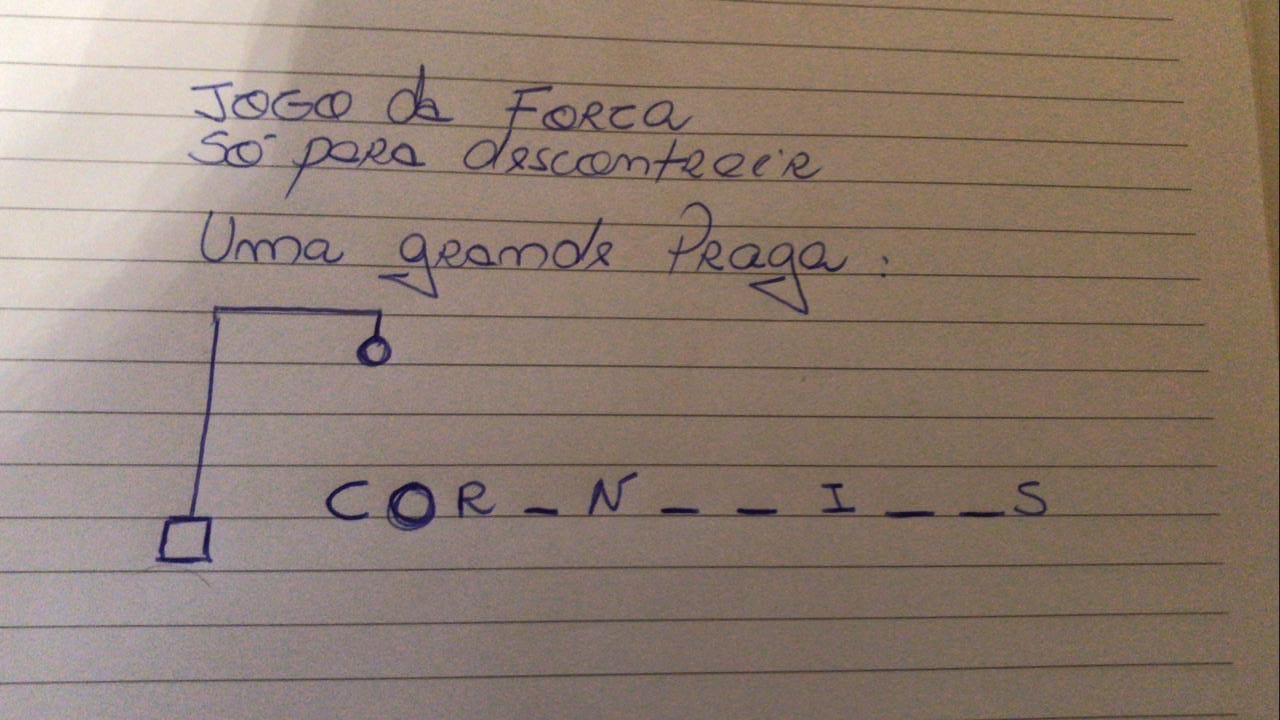 JOGO da FORCA
Só para descontrair
Uma grande Praga:
COR_N__I__S